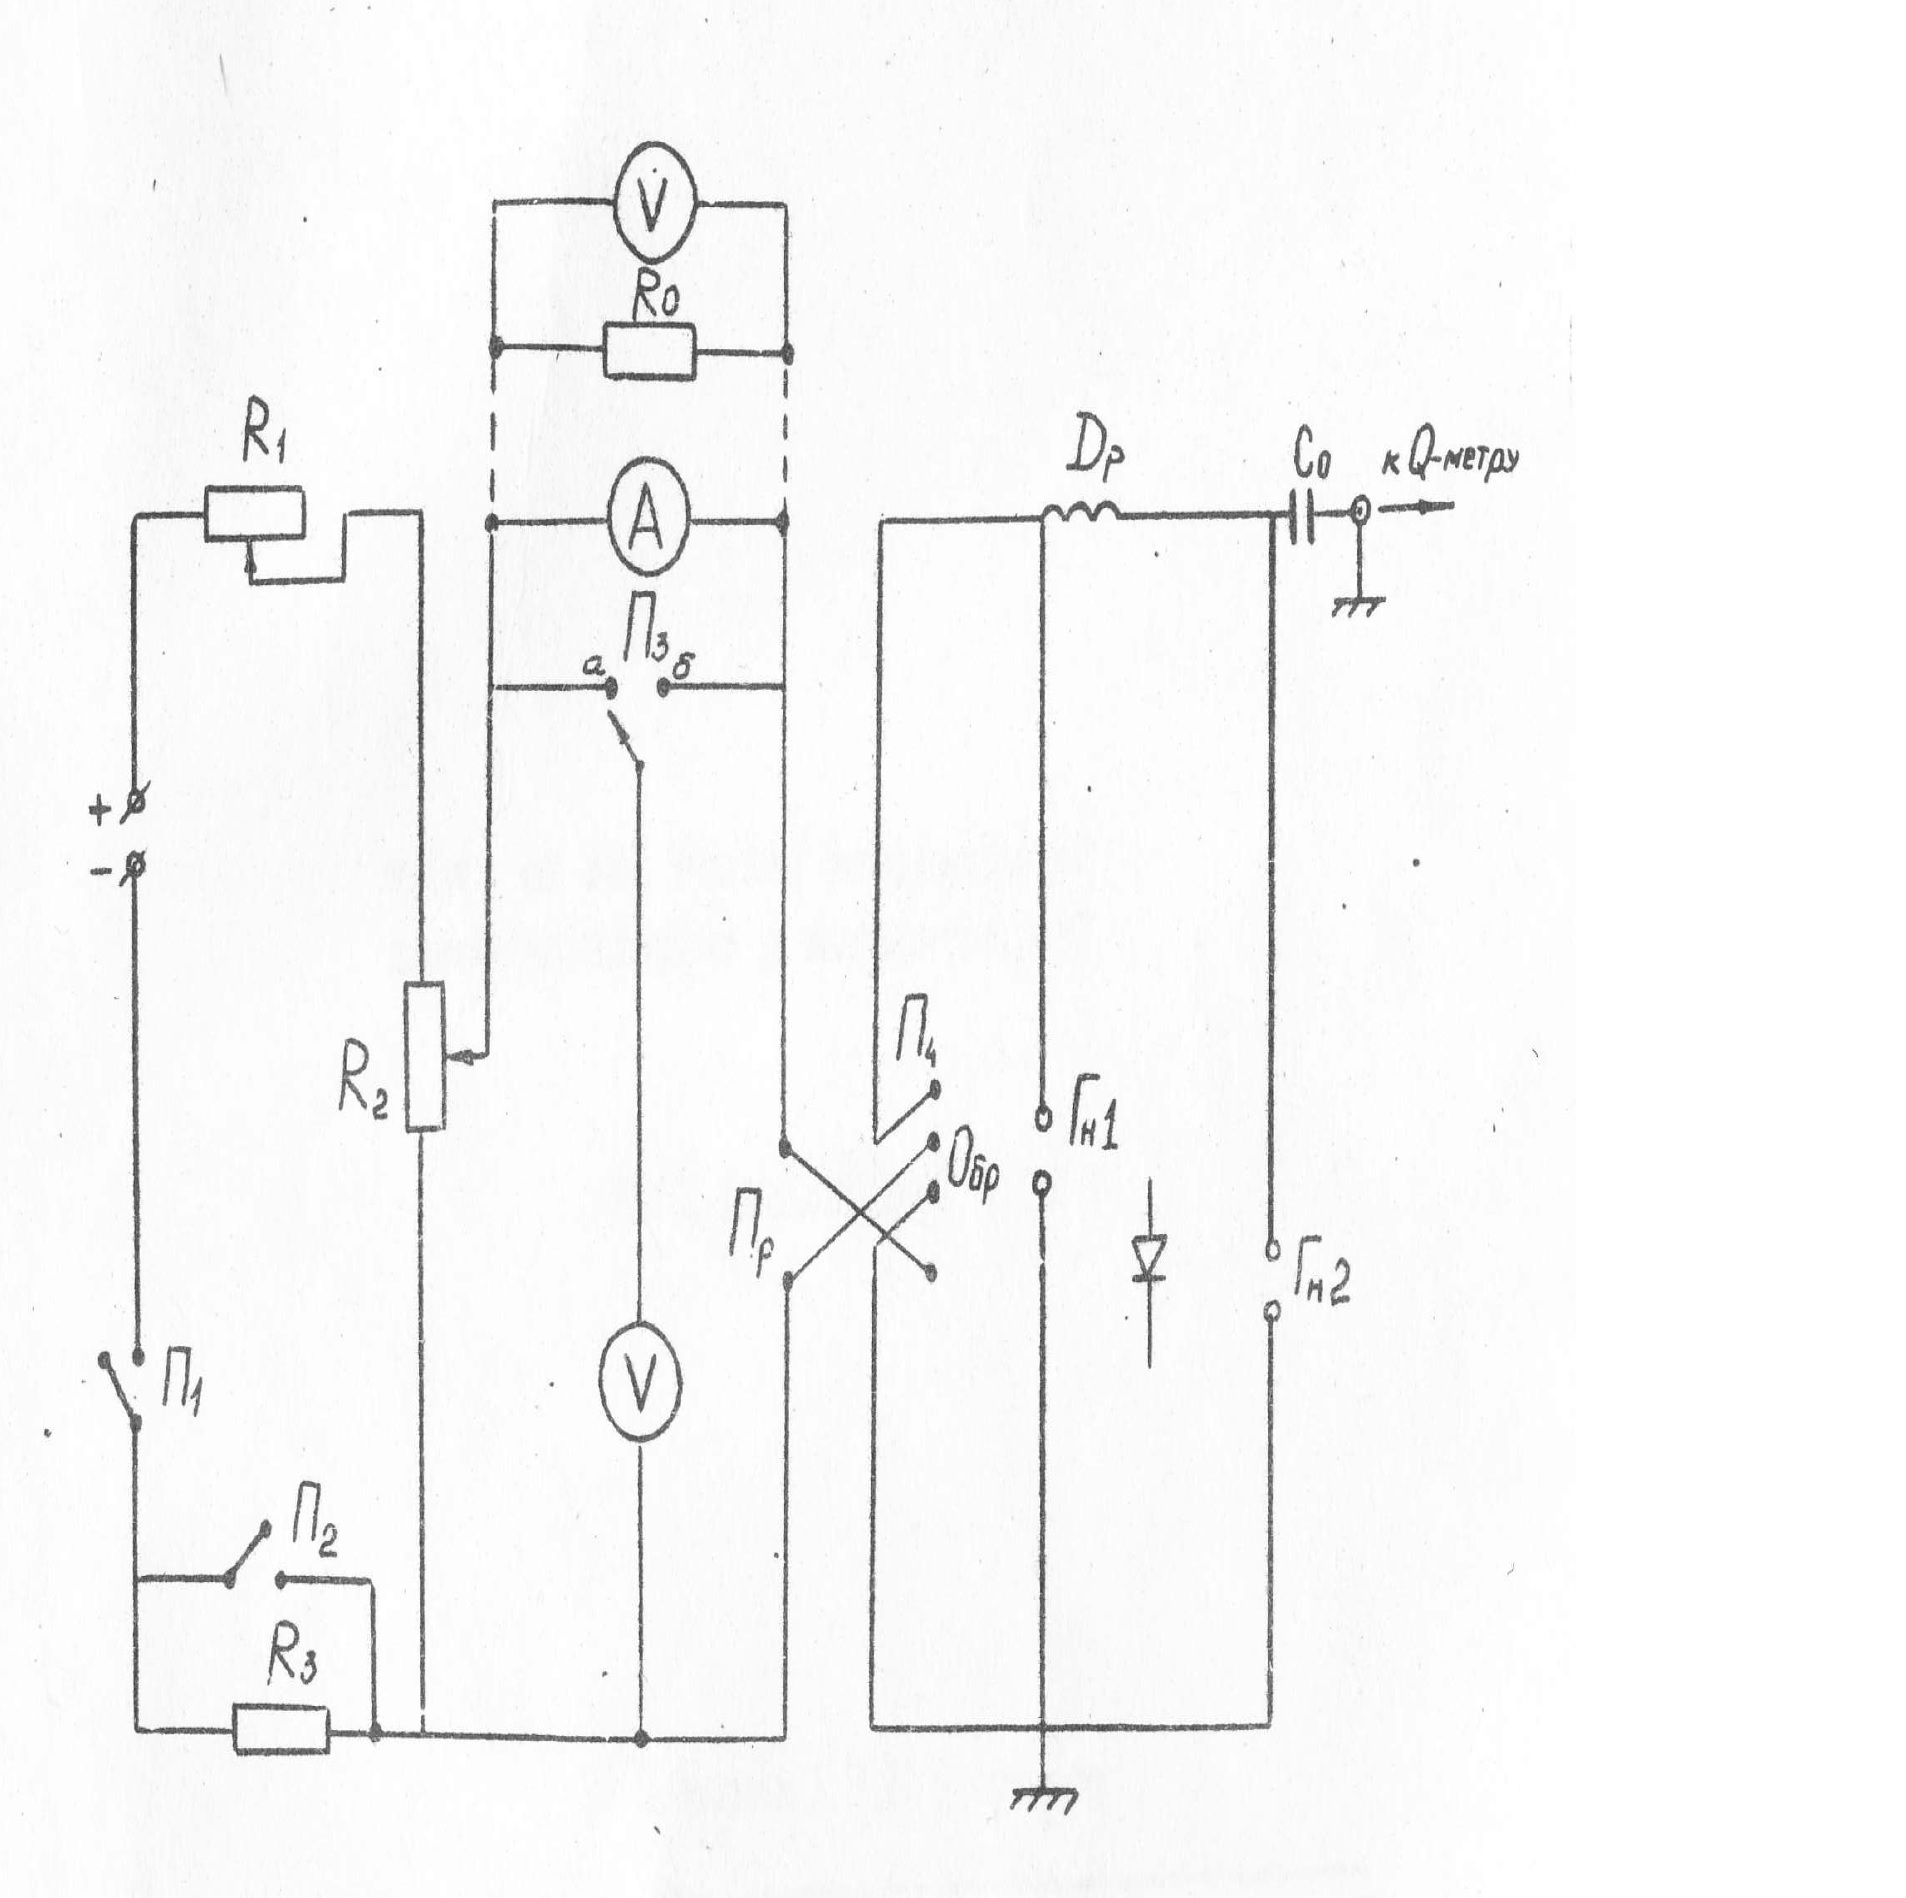 V
R0
R1
Др
C0
к Q-метру
A
П3
а
б
+
-
П4
R2
Гн1
Обр
Пр
Гн2
V
П1
П2
R3